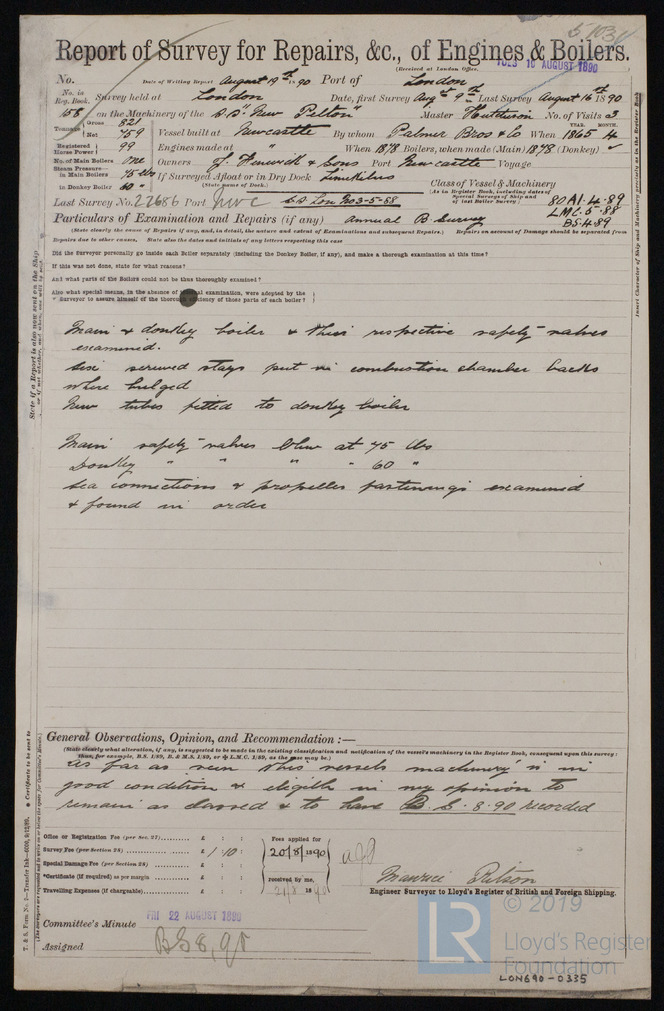 Report of Survey for Repairs, &c., of Engines & Boilers.
(Received at London Office,
TUES 19 AUGUST 1890
No.
Date of Writing Report August 19th 1890 Port of London
No. in Reg. Book. Survey held at London Date, first Survey Aug 9th Last Survey August 16th 1890
158 on the Machinery of the S.S. "New Pelton" Master Hutchison No. of Visits 3
Tonnage Gross 821
Net 759 Vessel built at Newcastle By whom Palmer Bros & Co When YEAR. 1865 MONTH. 4
Registered Horse Power 99 Engines made at " When 1878 Boilers, when made (Main) 1878 (Donkey)
No. of Main Boilers one Owners J. Fenwick & Sons Port Newcastle Voyage
Steam Pressure in Main Boilers 75 lbs If Surveyed Afloat or in Dry Dock Limekilns
(State name of Dock.)
in Donkey Boiler 60 "
Class of Vessel & Machinery
(As in Register Book, including dates of Special Surveys of Ship and of last Boiler Survey)
80A1-4-89
LMC-5-88
BS-4-89
Last Survey No. 22686 Port Nwc S.S. Lon No3-5-88
Particulars of Examination and Repairs (if any) annual B. Survey
(State clearly the cause of Repairs if any, and, in detail, the nature and extent of Examinations and subsequent Repairs.) Repairs on account of Damage should be separated from
Repairs due to other causes. State also the dates and initials of any letters respecting this case
Did the Surveyor personally go inside each Boiler separately (including the Donkey Boiler, if any), and make a thorough examination at this time?
If this was not done, state for what reasons?
And what parts of the Boilers could not be thus thoroughly examined?
Also what special means, in the absence of internal examination, were adopted by the
Surveyor to assure himself of the thorough efficiency of those parts of each boiler?
Main & donkey boiler & their respective safety-valves
examined.
Six screwed stays put in combustion chamber backs
where bulged
New tubes fitted to donkey boiler
Main safety-valves blew at 75 lbs
Donkey " " " " 60 "
Sea connections & propeller fastenings examined
& found in order
General Observations, Opinion, and Recommendation :—
(State clearly what alteration, if any, is suggested to be made in the existing classification and notification of the vessel's machinery in the Register Book, consequent upon this survey:
thus, for example, B.S. 1/89, B. & M.S. 1/89, or L.M.C. 1/89, as the case may be.)
As far as seen this vessels machinery is in
good condition & eligible in my opinion to
remain as classed & to have B S. 8.90 recorded
Office or Registration Fee (per Sec. 27) £ : :
Survey Fee (per Section 28) £ 1 : 10 :
Special Damage Fee (per Section 28) £ : :
*Certificate (if required) as per margin £ : :
Travelling Expenses (if chargeable) £ : :
Fees applied for
20/8/1890
received by me,
21/8 1890
Maurice Ritson
Engineer Surveyor to Lloyd's Register of British and Foreign Shipping.
Committee's Minute FRI 22 AUGUST 1890
Assigned BS 8,90
© 2019
LR
Lloyd's Register
Foundation
LON690-0335
State if a Report is also now sent on the Ship
or if not whether, and when, one will be sent.
Insert Character of Ship and Machinery precisely as in the Register Book